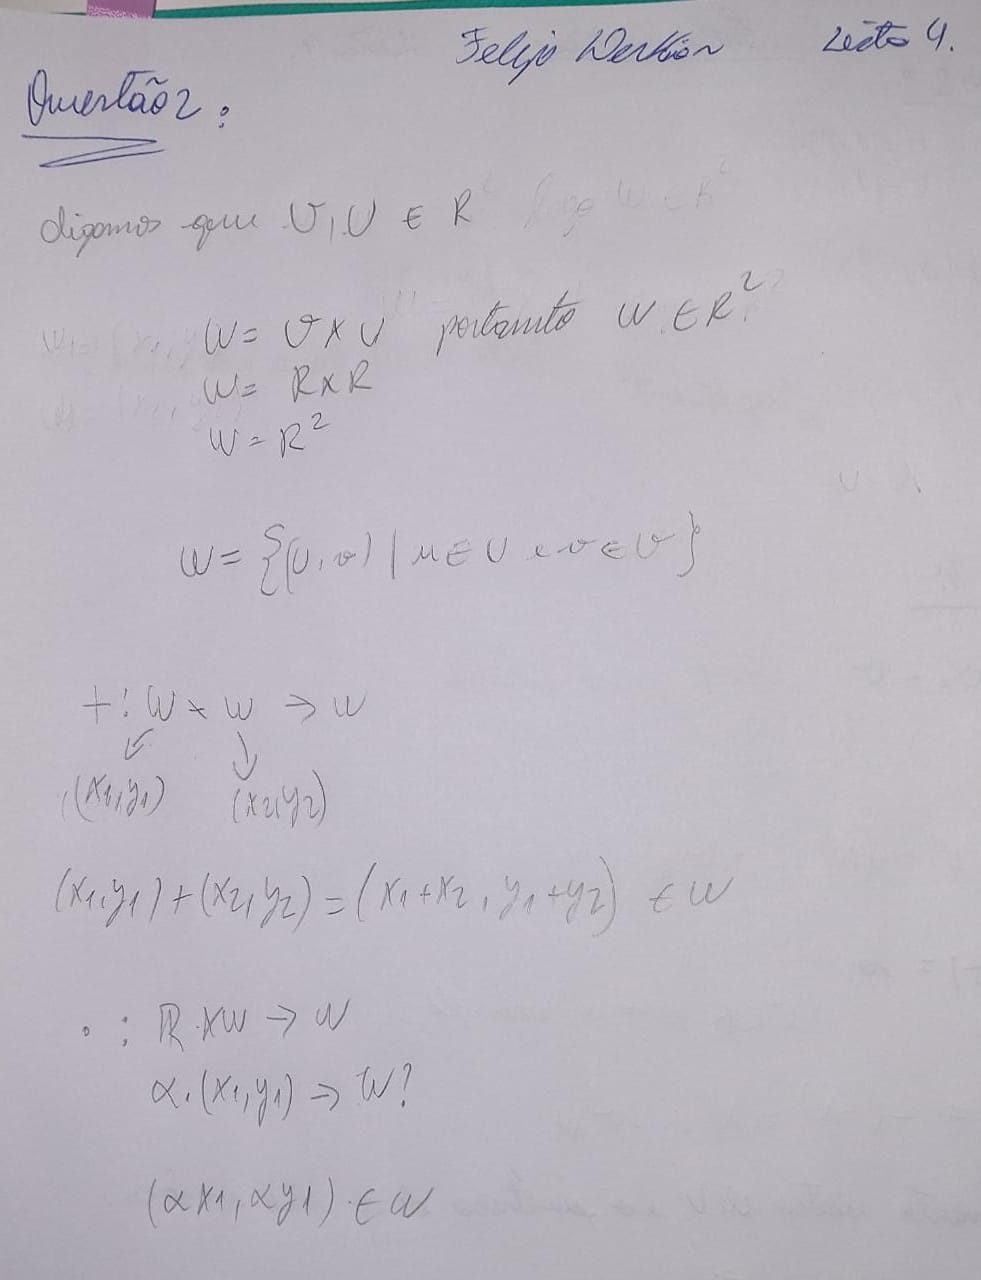 Lista 4.
Questão 2:
digamos que V, U ∈ R
W = V x U portanto W ∈ R²
W = R x R
W = R²
W = {(U, v) | u ∈ U e v ∈ V}
+: W x W → W
(x1, y1) (x2, y2)
(x1, y1) + (x2, y2) = (x1 + x2, y1 + y2) ∈ W
• : R x W → W
α. (x1, y1) → W?
(αx1, αy1) ∈ W